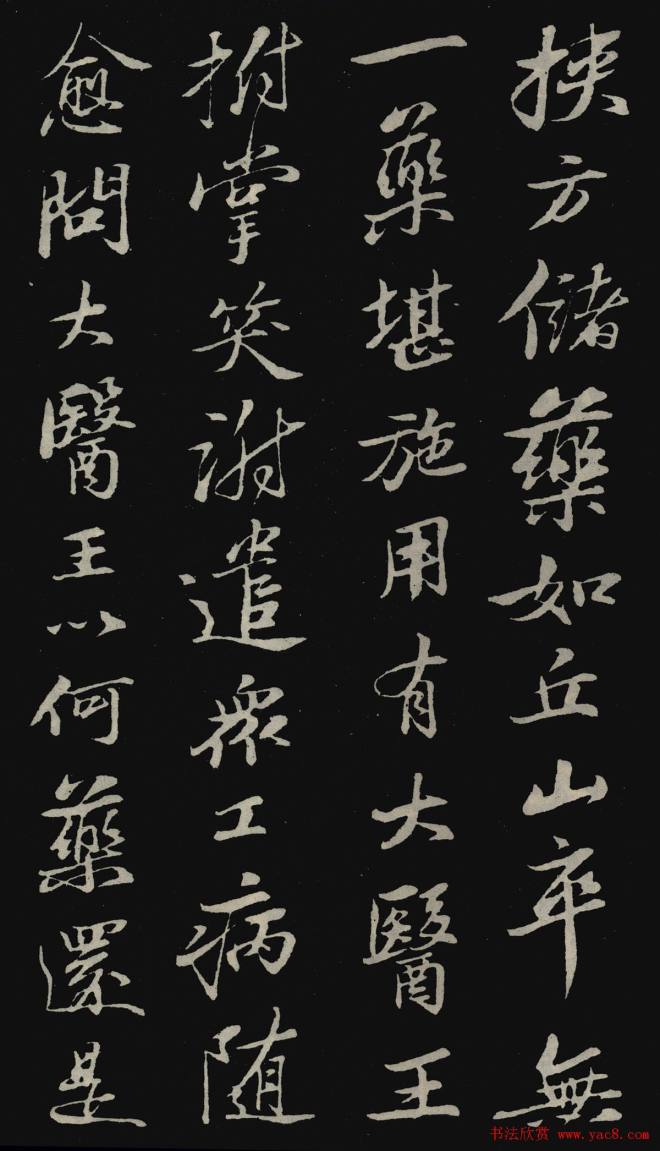 挟方儲藥如丘山卒無
一藥堪施用有大醫王
拊掌笑謝遣衆工病随
愈問大醫王以何藥還是
书法欣赏 www.yac8.com